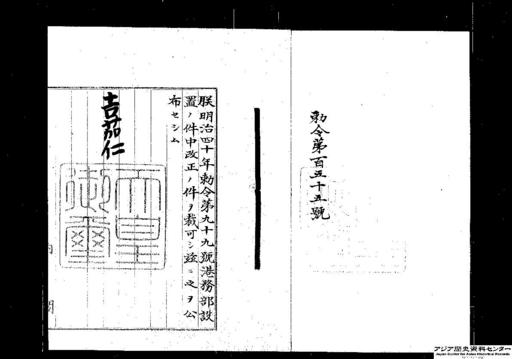 勅令第百五十五號
朕明治四十年勅令第九十九號港務部設
置ノ件中改正ノ件ヲ裁可シ茲ニ之ヲ公
布セシム
嘉仁
天皇
御璽
アジア歴史資料センター
Japan Center for Asian Historical Records